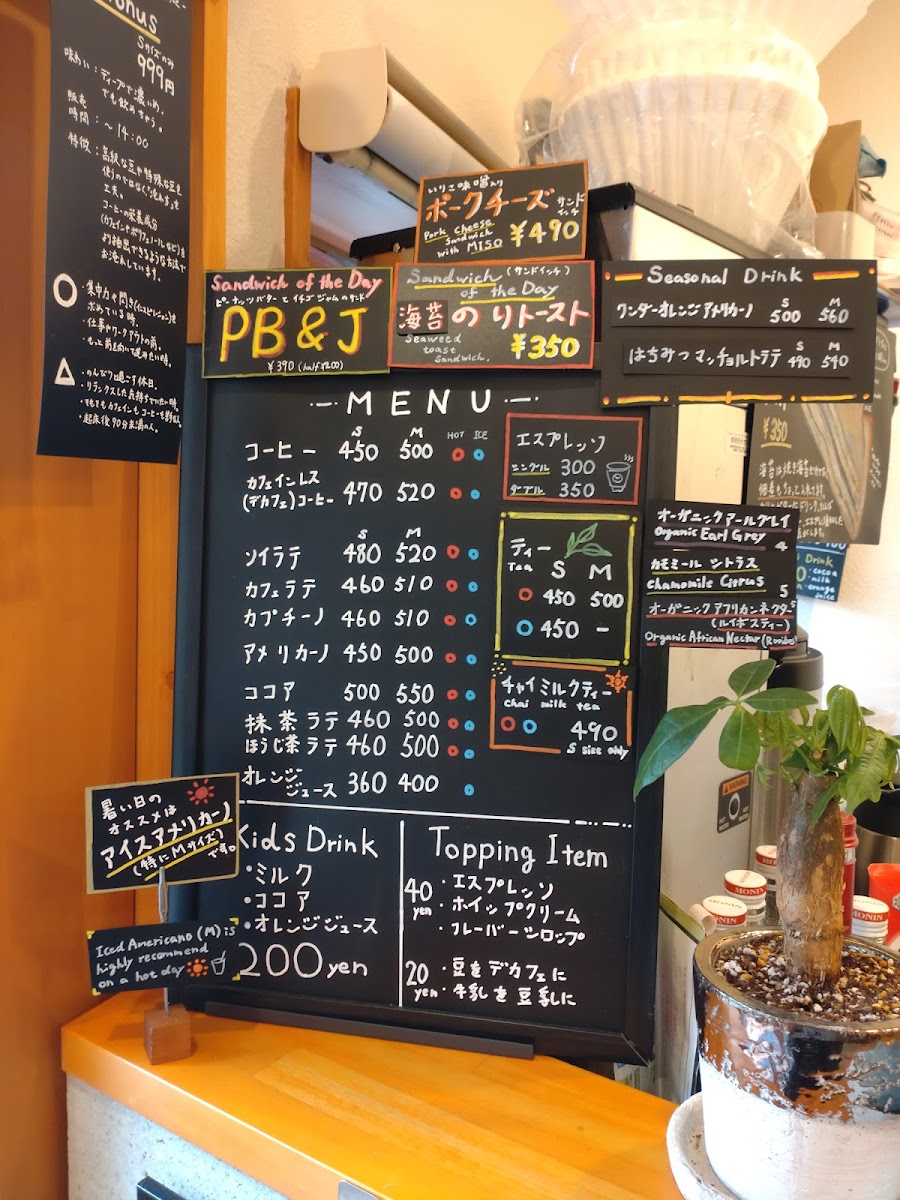 onus
Sサイズのみ
999円
味わい：ディープで濃いめ。
でも飲めちゃう。
販売
時間：～14:00
特徴：高級な豆や特殊な豆を
使うのではなく"淹れ方"を
工夫。
コーヒーの栄養成分
(カフェインやポリフェノールなど)を
お抽出できるような方法で
お淹れしています。
○・集中力や閃き(インスピレーション)を
求めている時。
・仕事やワークアウトの前。
・もっと前を向いて進みたい時。
△・のんびりと過ごす休日。
・リラックスした気持ちでいたい時。
・起床後90分未満の人。
いりこ味噌入り
ポークチーズ サンドイッチ
Pork Cheese
Sandwich
with MISO ¥490
Sandwich of the Day
ピーナッツバターとイチゴジャムのサンド
PB&J
¥390 (half ¥200)
Sandwich (サンドイッチ)
of the Day
海苔のりトースト
Seaweed
toast
Sandwich. ¥350
Seasonal Drink
S M
ワンダーオレンジアメリカーノ 500 560
S M
はちみつマッチョルトラテ 490 540
¥350
MENU
S M HOT ICE
コーヒー 450 500
カフェインレス
(デカフェ)コーヒー 470 520
S M
ソイラテ 480 520
カフェラテ 460 510
カプチーノ 460 510
アメリカーノ 450 500
ココア 500 550
抹茶ラテ 460 500
ほうじ茶ラテ 460 500
オレンジ
ジュース 360 400
エスプレッソ
シングル 300
ダブル 350
ティー
Tea S M
450 500
450 -
チャイミルクティー
chai milk tea
490
S size only
オーガニックアールグレイ
Organic Earl Grey
カモミール シトラス
Chamomile Citrus
オーガニックアフリカンネクター
(ルイボスティー)
Organic African Nectar (Rooibos)
Drink
cocoa
milk
orange
juice
暑い日の
オススメは
アイスアメリカーノ
(特にMサイズ)
です。
Iced Americano (M) is
highly recommend
on a hot day
Kids Drink
・ミルク
・ココア
・オレンジジュース
200yen
Topping Item
40 yen ・エスプレッソ
・ホイップクリーム
・フレーバーシロップ
20 yen ・豆をデカフェに
・牛乳を豆乳に
WARNING
MONIN
MONIN
MONIN
MONIN